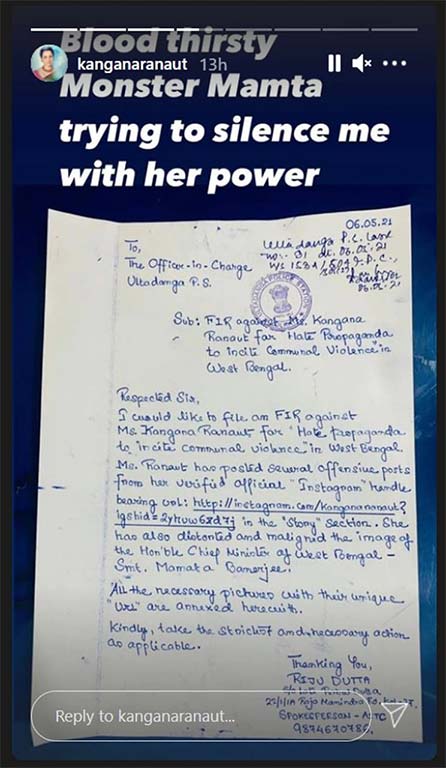 Blood thirsty
kanganaranaut 13h
Monster Mamta
trying to silence me
with her power
06.05.21
To,
The Officer-in-Charge
Ultadanga P.S.
Ultadanga P.S. Case
06.05.21
06.05.21
Sub: FIR against Ms. Kangana
Ranaut for "Hate Propaganda
to incite Communal Violence" in
West Bengal.
Respected Sir,
I would like to file an FIR against
Ms. Kangana Ranaut for "Hate Propaganda
to incite communal violence" in West Bengal.
Ms. Ranaut has posted several offensive posts
from her verified official "Instagram" handle
bearing url: http://instagram.com/kanganaranaut?
in the "Story" section. She
has also distorted and maligned the image of
the Hon'ble Chief Minister of West Bengal -
Smt. Mamata Banerjee.
All the necessary pictures with their unique
"Url" are annexed herewith.
Kindly, take the strictest and necessary action
as applicable.
Thanking You,
RIJU DUTTA
SPOKESPERSON - AITC
9874670786
Reply to kanganaranaut...